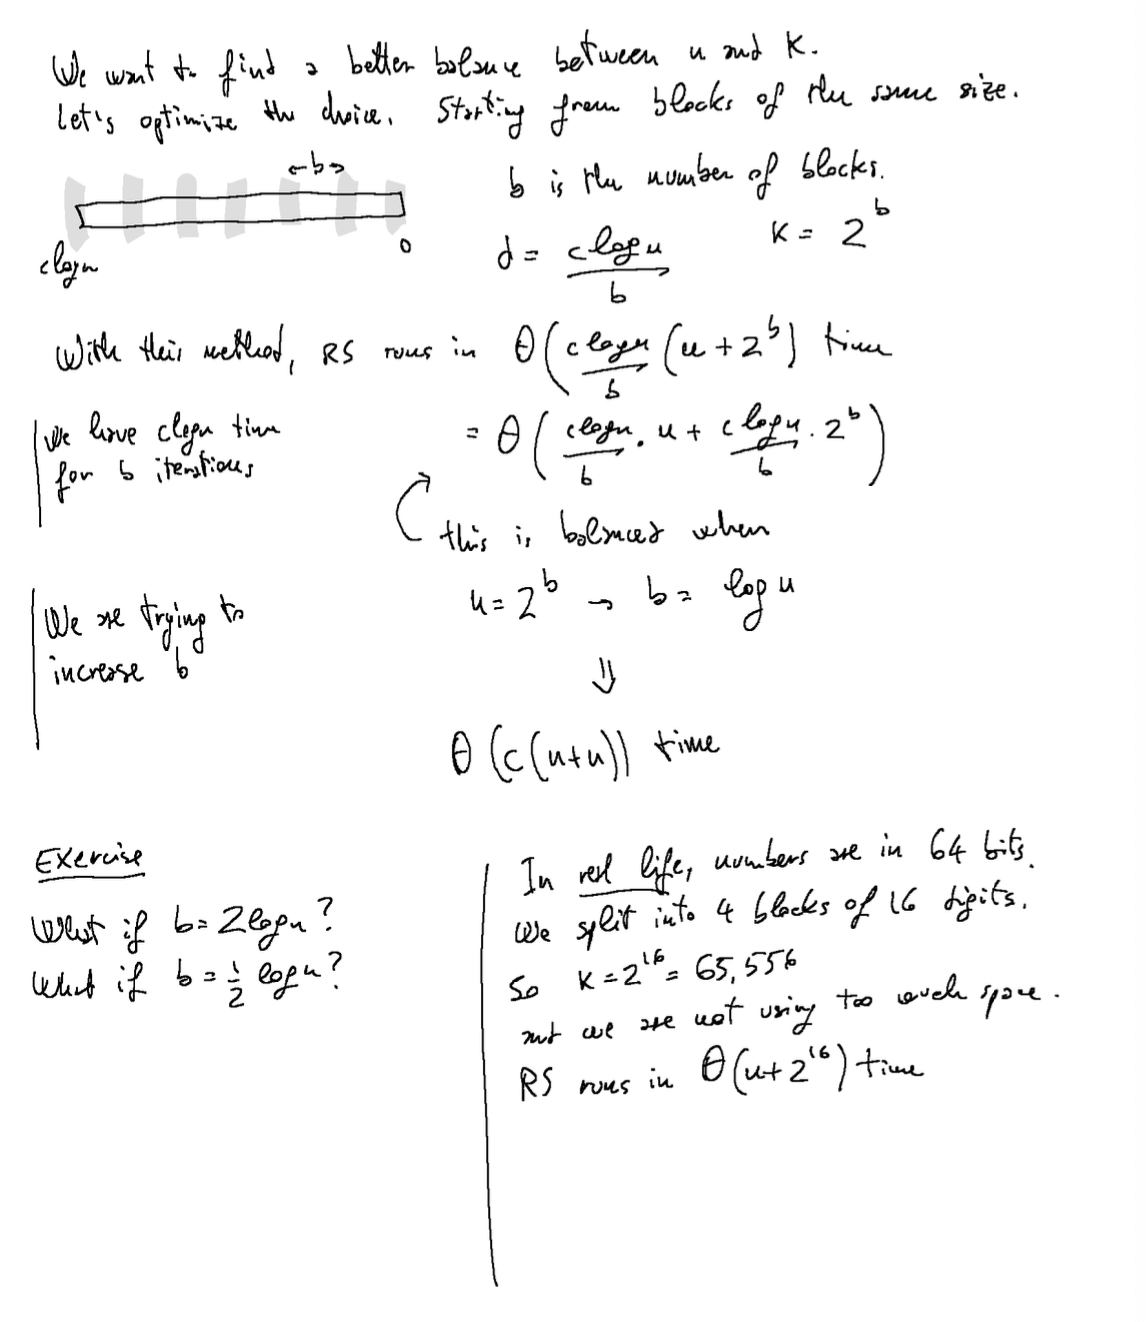 We want to find a better balance between n and K.
Let's optimize the choice. Starting from blocks of the same size.
←b→
b is the number of blocks.
clogn
0
d = clogn / b
K = 2^b
With this method, RS runs in Θ(clogn/b (n + 2^b)) time
We have clogn time
for b iterations
= Θ(clogn/b · n + clogn/b · 2^b)
this is balanced when
n = 2^b → b = log n
We are trying to
increase b
⇓
Θ(c(n+n)) time
Exercise
What if b = 2logn?
What if b = 1/2 logn?
In real life, numbers are in 64 bits.
We split into 4 blocks of 16 digits.
So K = 2^16 = 65,556
and we are not using too much space.
RS runs in Θ(n + 2^16) time